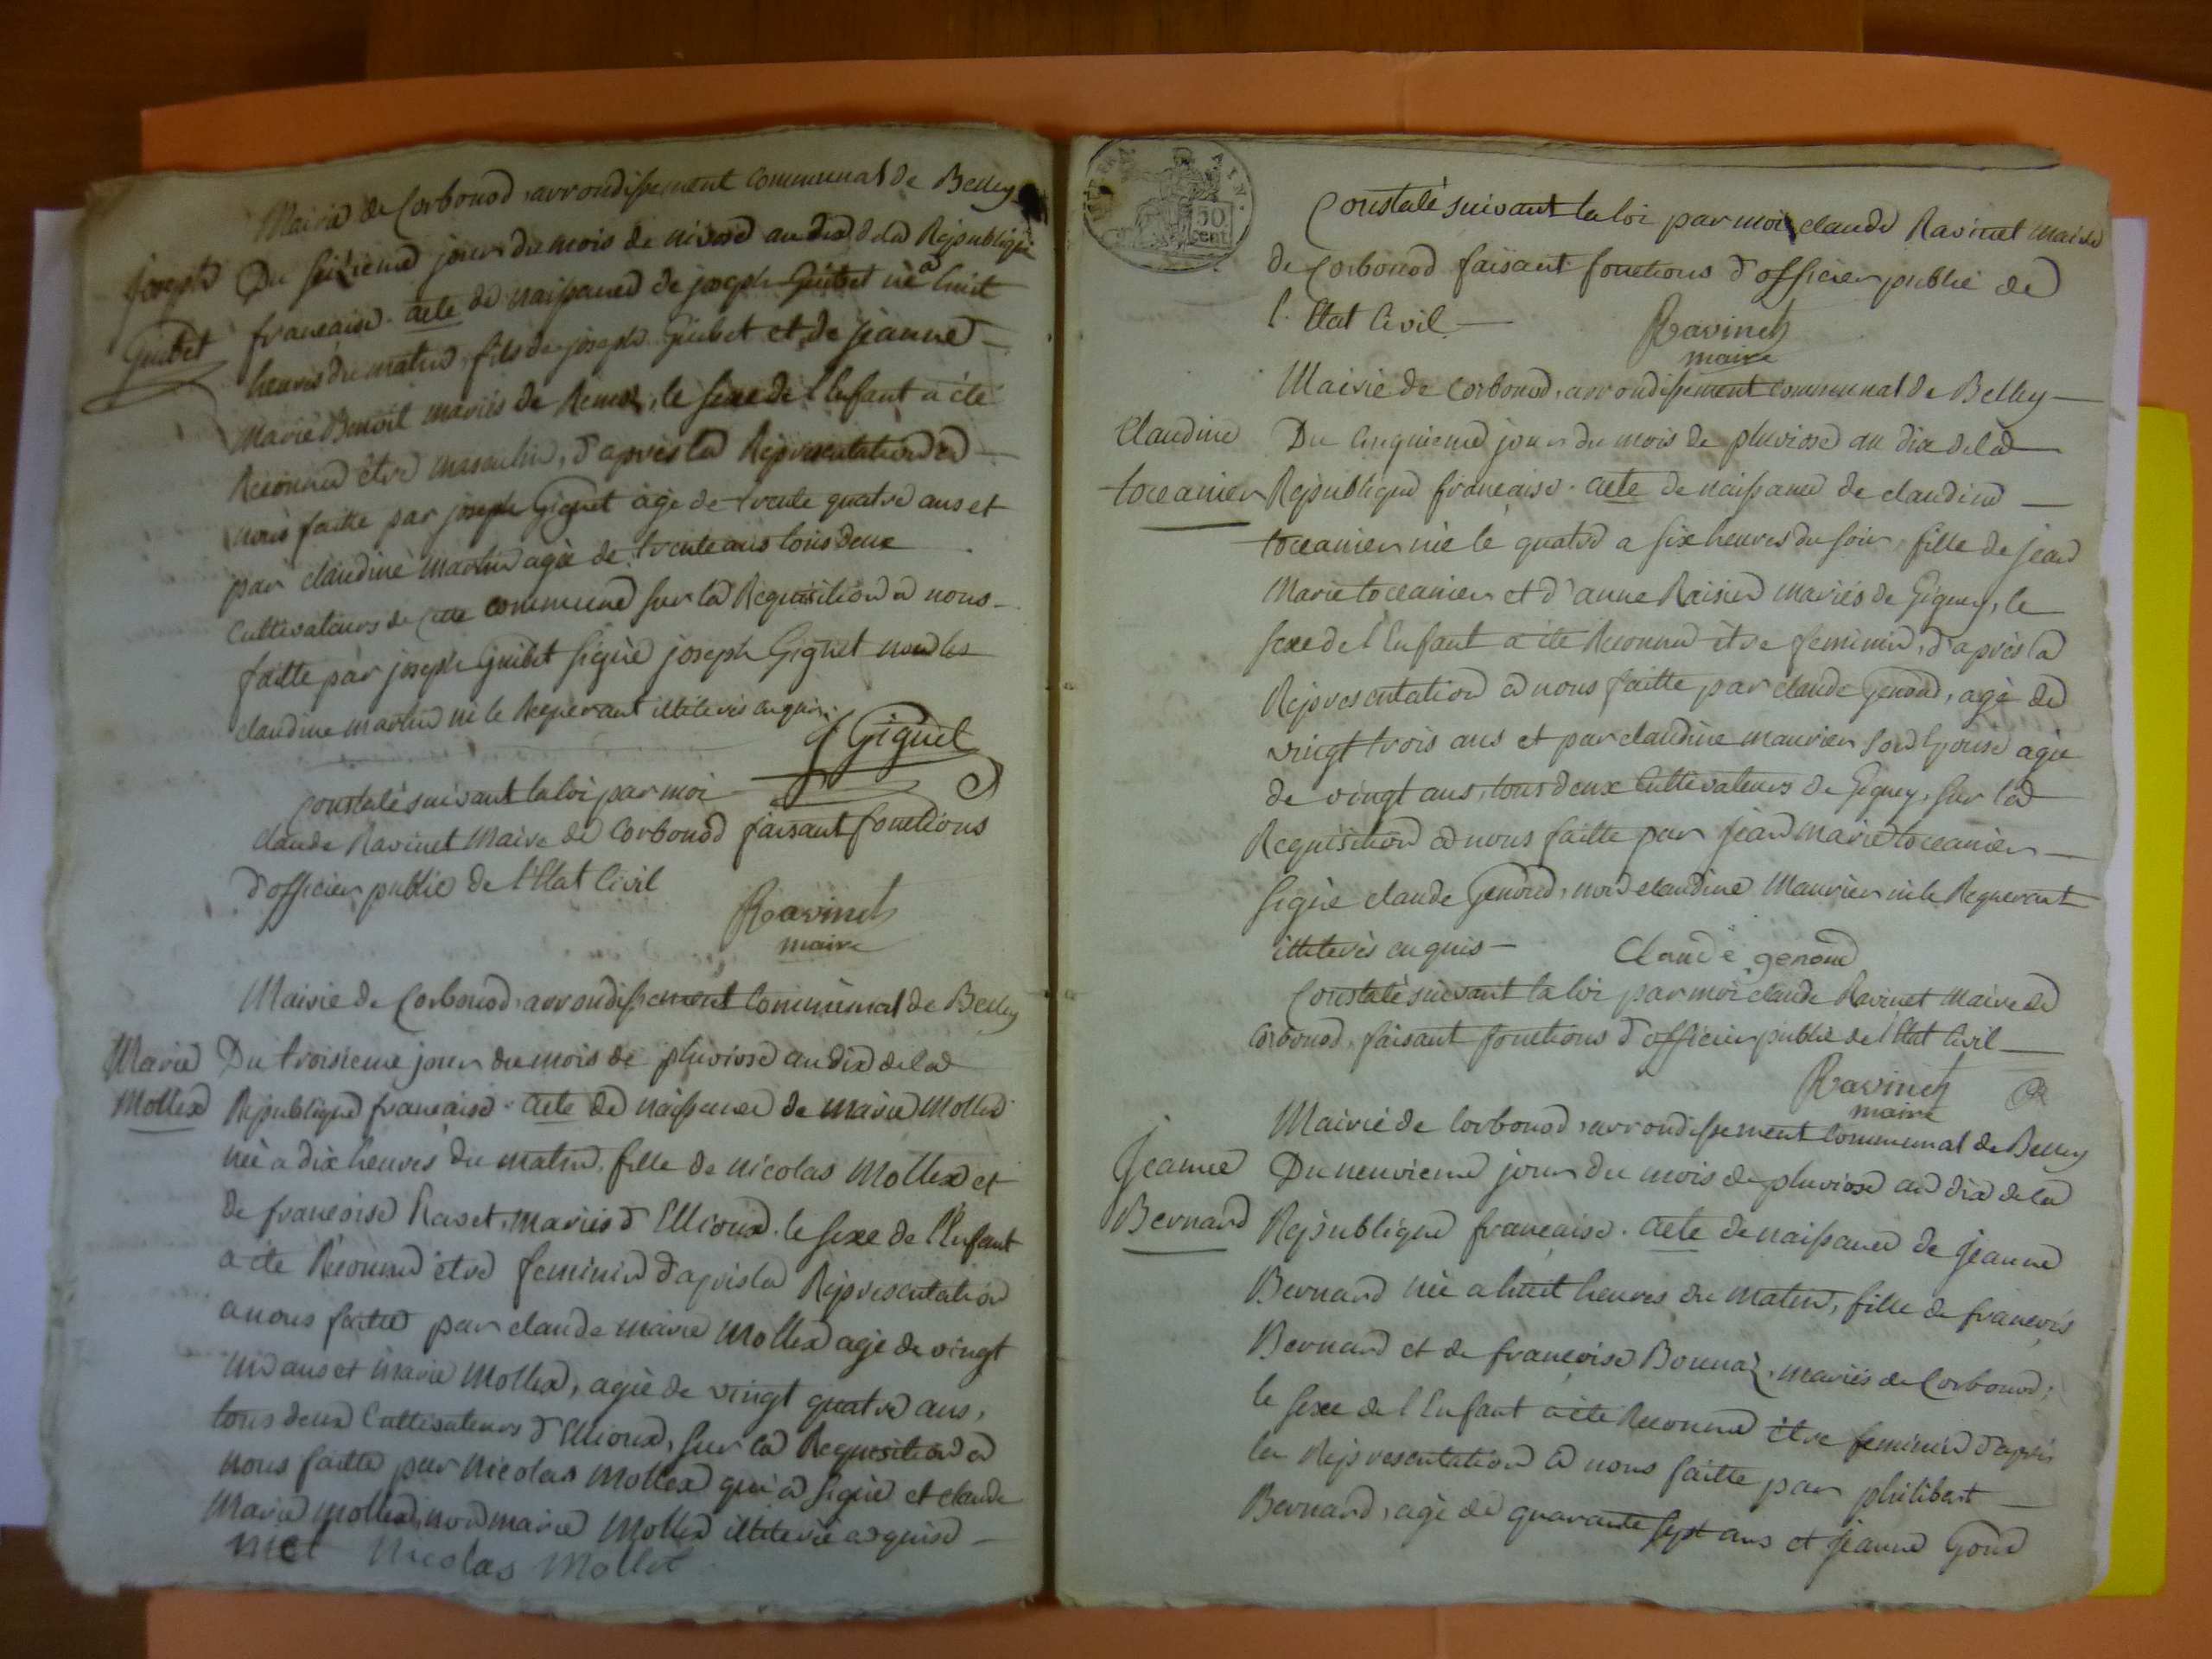 Mairie de Corbonod, arrondissement communal de Belley
Joseph
Guibet
Du seizieme jour du mois de nivose an dix de la Republique
francaise. acte de naissance de joseph Guibet né a huit
heures du matin, fils de joseph Guibet et de jeanne
Marie Benoit mariés de Remoz, le sexe de l'Enfant a été
Reconnu être masculin, d'après la Representation a
nous faitte par joseph Giguet agé de trente quatre ans et
par claudine martin agée de trente ans tous deux
Cultivateurs de cette commune sur la Requisition a nous
faitte par joseph Guibet signé joseph Giguet non les
claudine martin ni le Requerant illiteres enquis.
J Giguet
Constaté suivant la loi par moi
claude Ravinet Maire de Corbonod faisant fonctions
d'officier public de l'Etat Civil
Ravinet
maire
Mairie de Corbonod, arrondissement Communal de Belley
Marie
Mollex
Du troisieme jour du mois de pluviose an dix de la
Republique francaise. acte de naissance de marie Mollex
née a dix heures du matin, fille de nicolas Mollex et
de francoise Ravet, mariés d'Ellioux. le sexe de l'Enfant
a été Reconnu être feminin d'après la Representation
a nous faitte par claude marie Mollex agé de vingt
un ans et marie Mollex, agée de vingt quatre ans,
tous deux Cultivateurs d'Ellioux, sur la Requisition a
nous faitte par Nicolas Mollex qui a signé et claude
Marie mollex, non marie Mollex illiterée enquise
Nicolas Mollet
50
cent
Constaté suivant la loi par moi claude Ravinet Maire
de Corbonod faisant fonctions d'officier public de
l'Etat Civil
Ravinet
maire
Mairie de Corbonod, arrondissement communal de Belley
Claudine
toccanier
Du cinquieme jour du mois de pluviose an dix de la
Republique francaise. acte de naissance de claudine
toccanier née le quatre a six heures du soir, fille de jean
Marie toccanier et d'anne Raisin mariés de Gignez, le
sexe de l'Enfant a été Reconnu être feminin, d'après la
Representation a nous faitte par claude Genoud, agé de
vingt trois ans et par claudine maurier son Epouse agée
de vingt ans, tous deux Cultivateurs de Gignez, sur la
Requisition a nous faitte par jean marie toccanier
signé claude Genoud, non claudine Maurier ni le Requerant
illiterés enquis
Claude genoud
Constaté suivant la loi par moi claude Ravinet Maire de
Corbonod, faisant fonctions d'officier public de l'Etat Civil
Ravinet
maire
Mairie de Corbonod, arrondissement Communal de Belley
Jeanne
Bernard
Du neuvieme jour du mois de pluviose an dix de la
Republique francaise. acte de naissance de jeanne
Bernard née a huit heures du matin, fille de francois
Bernard et de francoise Bonnaz, mariés de Corbonod,
le sexe de l'Enfant a été Reconnu être feminin d'après
la Representation a nous faitte par philibert
Bernard, agé de quarante sept ans et jeanne